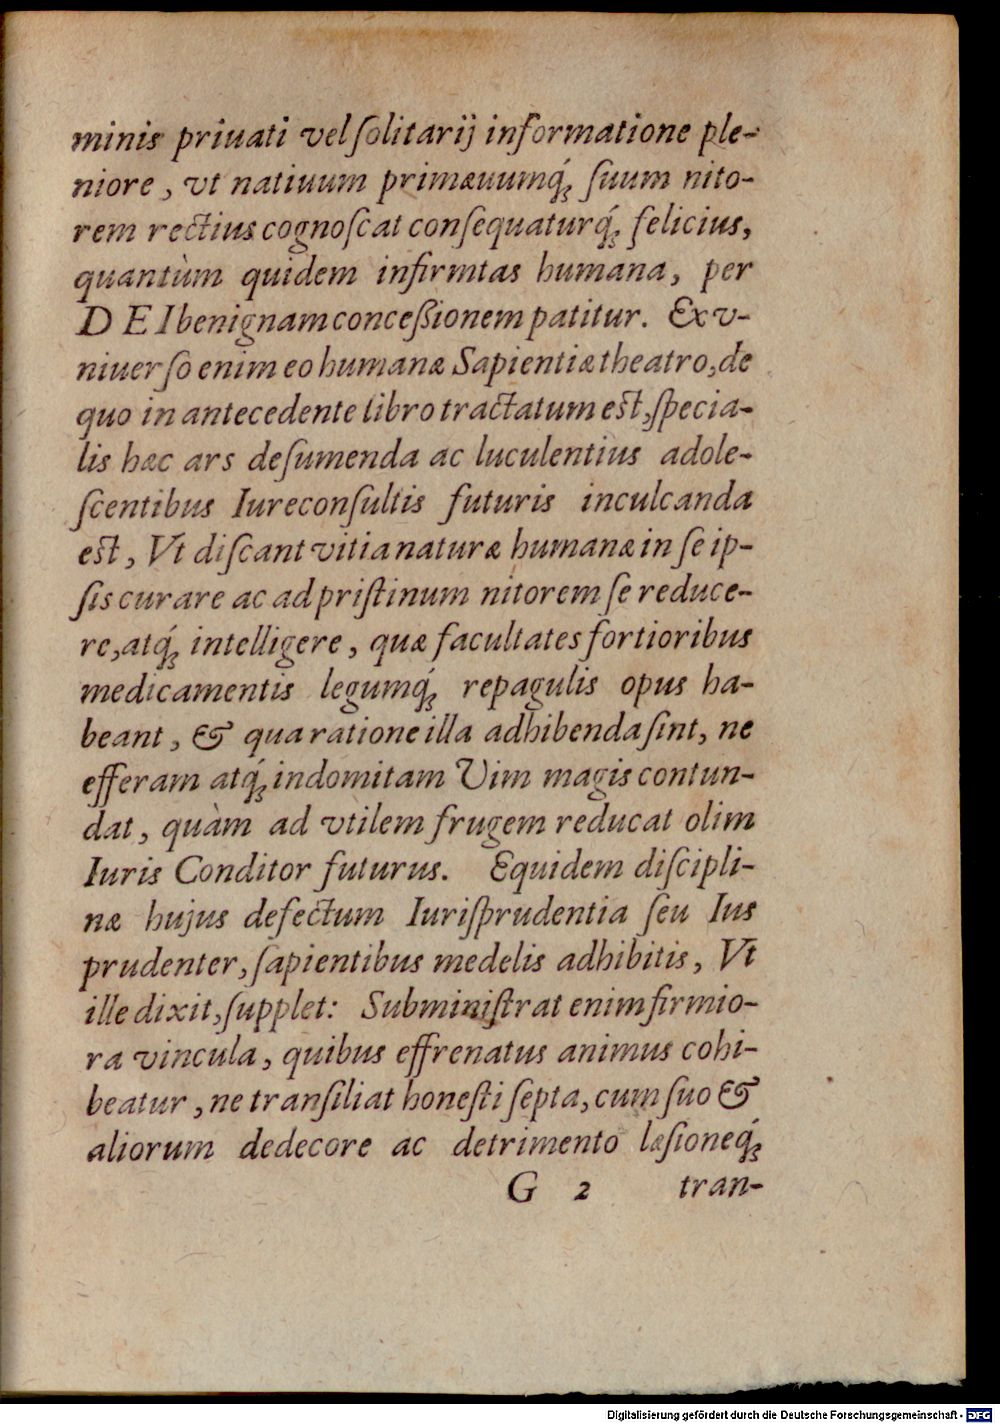 minis priuati vel ſolitarij informatione ple-
niore, vt natiuum primæuumq́ꝫ ſuum nito-
rem rectius cognoſcat conſequaturq́ꝫ felicius,
quantùm quidem infirmtas humana, per
D E I benignam conceßionem patitur. Ex v-
niuerſo enim eo humanæ Sapientiæ theatro, de
quo in antecedente libro tractatum eſt, ſpecia-
lis hæc ars deſumenda ac luculentius adole-
ſcentibus Iureconſultis futuris inculcanda
eſt, Vt diſcant vitia naturæ humanæ in ſe ip-
ſis curare ac ad priſtinum nitorem ſe reduce-
re, atq́ꝫ intelligere, quæ facultates fortioribus
medicamentis legumq́ꝫ repagulis opus ha-
beant, & qua ratione illa adhibenda ſint, ne
efferam atq́ꝫ indomitam Vim magis contun-
dat, quàm ad vtilem frugem reducat olim
Iuris Conditor futurus. Equidem diſcipli-
næ hujus defectum Iuriſprudentia ſeu Ius
prudenter, ſapientibus medelis adhibitis, Vt
ille dixit, ſupplet: Subminiſtrat enim firmio-
ra vincula, quibus effrenatus animus cohi-
beatur, ne tranſiliat honeſti ſepta, cum ſuo &
aliorum dedecore ac detrimento læſioneq́ꝫ
G 2 tran-
Digitalisierung gefördert durch die Deutsche Forschungsgemeinschaft - DFG